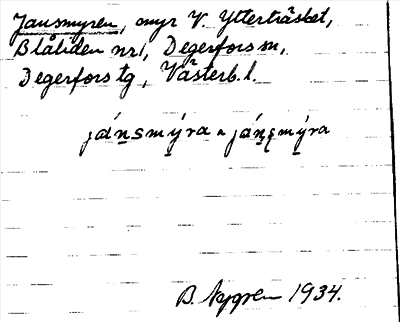 Jansmyren, myr V. Ytterträsket,
Blåliden nr 1, Degerfors sn,
Degerfors tg, Västerb. l.
jáṉsmý̱ra a já
B. Nygren 1934.